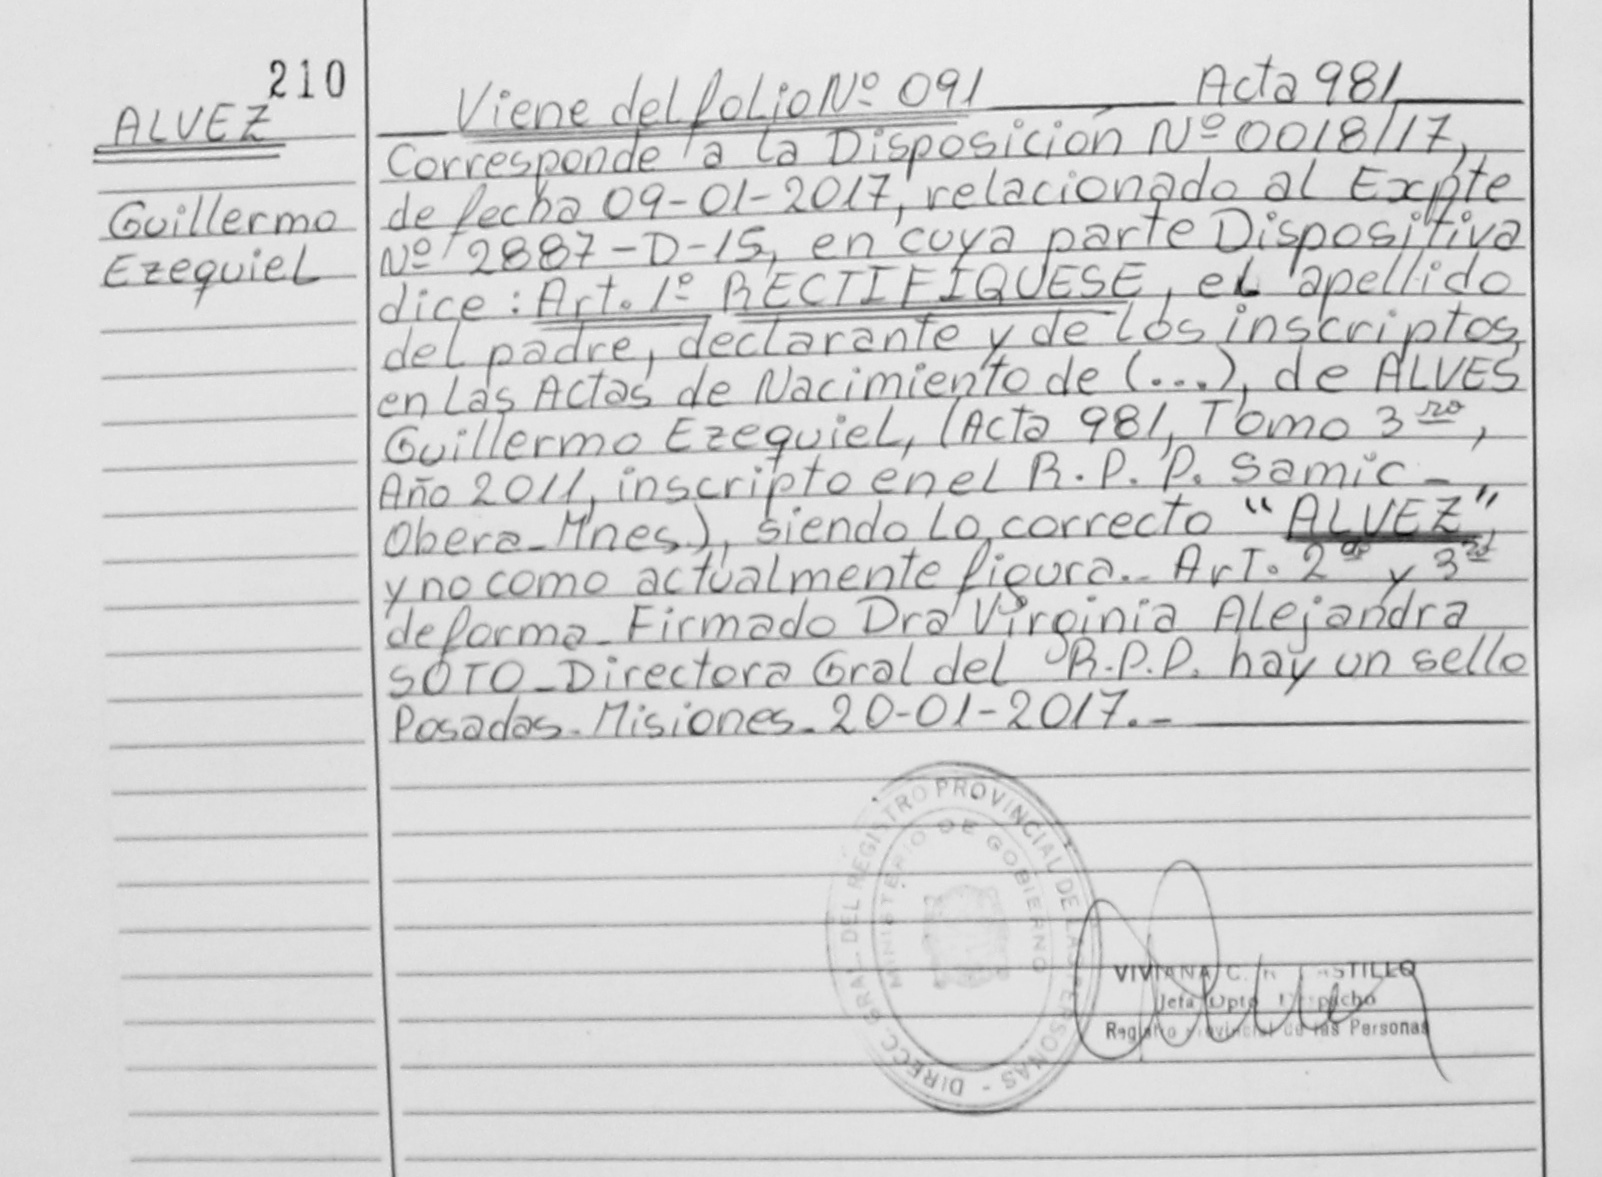 210
ALVEZ
Guillermo
Ezequiel
Viene del folio Nº 091 Acta 981
Corresponde a la Disposición Nº 0018/17,
de fecha 09-01-2017, relacionado al Expte
Nº 2887-D-15, en cuya parte Dispositiva
dice: Art. 1º RECTIFIQUESE, el apellido
del padre, declarante y de los inscriptos
en las Actas de Nacimiento de (...), de ALVES
Guillermo Ezequiel, (Acta 981, Tomo 3ro,
Año 2011, inscripto en el R.P.P. Samic-
Obera-Mnes.), siendo lo correcto "ALVEZ",
y no como actualmente figura.- Art. 2do y 3ro
de forma-Firmado Dra Virginia Alejandra
SOTO-Directora Gral del R.P.P. hay un sello
Posadas-Misiones-20-01-2017.-
DIRECC. GRAL. DEL REGISTRO PROVINCIAL DE LAS PERSONAS -
MINISTERIO DE GOBIERNO
VIVIANA C.
Jefa Dpto. Despacho
Registro Provincial de las Personas